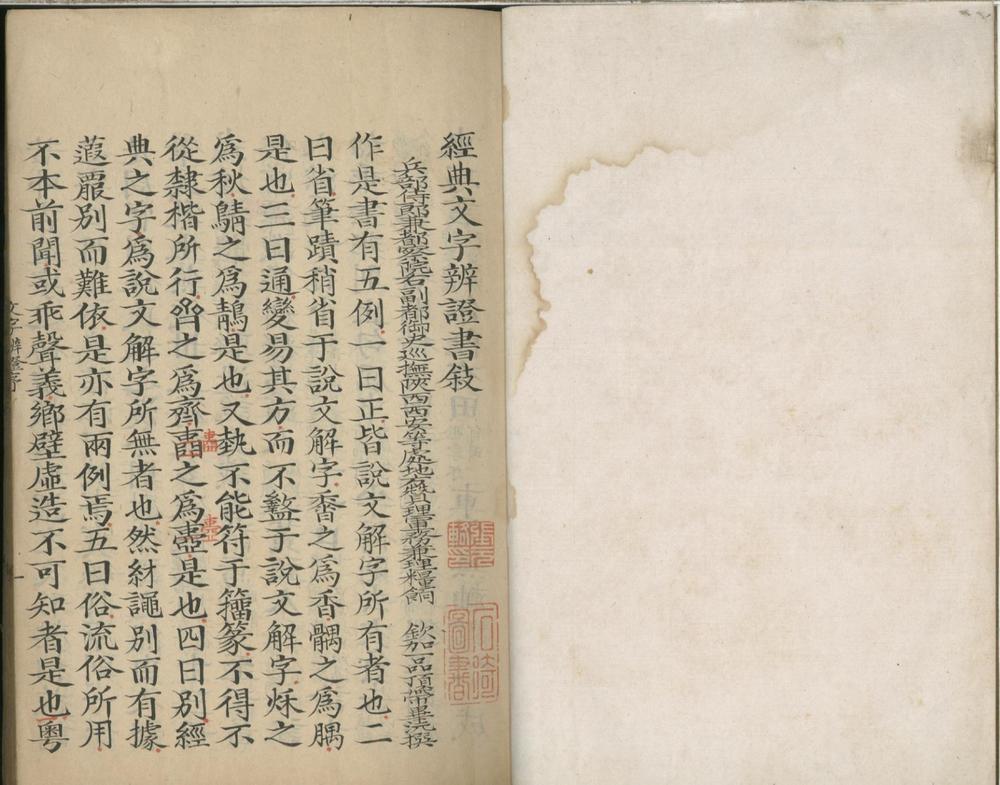 經典文字辨證書敍
兵部侍郎兼都察院右副都御史巡撫陝西西安等處地方贊理軍務兼理糧餉 欽加一品頂帶畢沅撰
作是書有五例一曰正皆說文解字所有者也二
曰省筆蹟稍省于說文解字𪏰之爲香髃之爲腢
是也三曰通變易其方而不盭于說文解字烁之
爲秋鶄之爲䴖是也又埶不能符于籒篆不得不
從隸楷所行𠫼之爲齊𧗕之爲衋是也四曰別經
典之字爲說文解字所無者也然紂譝別而有據
蕸罷別而難依是亦有兩例焉五曰俗流俗所用
不本前聞或乖聲義鄉壁虛造不可知者是也粵
文字辨證序
一